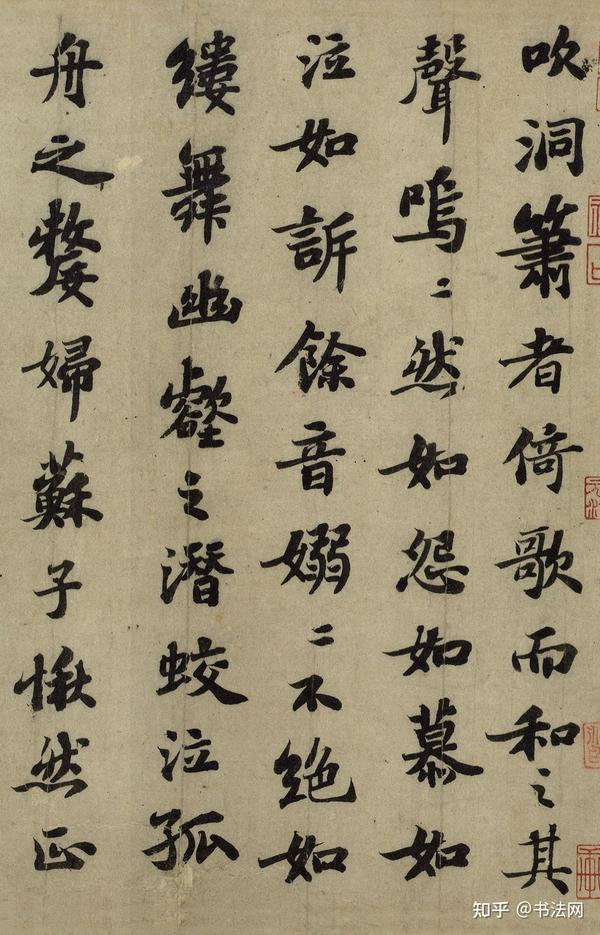 吹洞簫者倚歌而和之其
聲嗚〻然如怨如慕如
泣如訴餘音嫋〻不絕如
縷舞幽壑之潛蛟泣孤
舟之嫠婦蘇子愀然正
知乎 @书法网